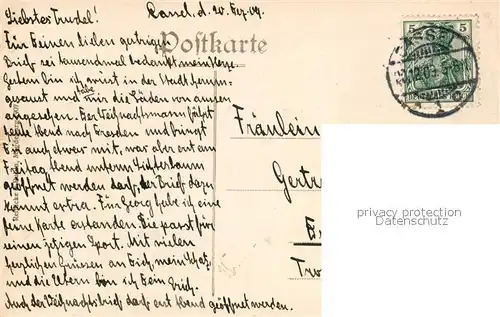 Liebstes Trudel! Kassel, d. 20. Dez. 09.
Postkarte
Für Deinen lieben gestrigen
Brief sei tausendmal bedankt mein Herz.
Gestern bin ich erst in der Stadt herum-
gesaust und habe mir die Läden von aussen
angesehen. Der Weihnachtsmann fährt
heute Abend nach Dresden und bringt
Dir auch etwas mit, was aber erst am
Freitag Abend unterm Lichterbaum
geöffnet werden darf, der Brief dazu
kommt extra. Für Georg habe ich eine
feine Karte erstanden. Sie passt für
seinen jetzigen Sport. Mit vielen
herzlichen Grüssen an Dich, mein Schatz,
und die Eltern bin ich Dein Erich.
Auch der Weihnachtsbrief darf erst Abend geöffnet werden.
Fräulein
Gertr
Tro
5 5
CASSEL
privacy protection
Datenschutz